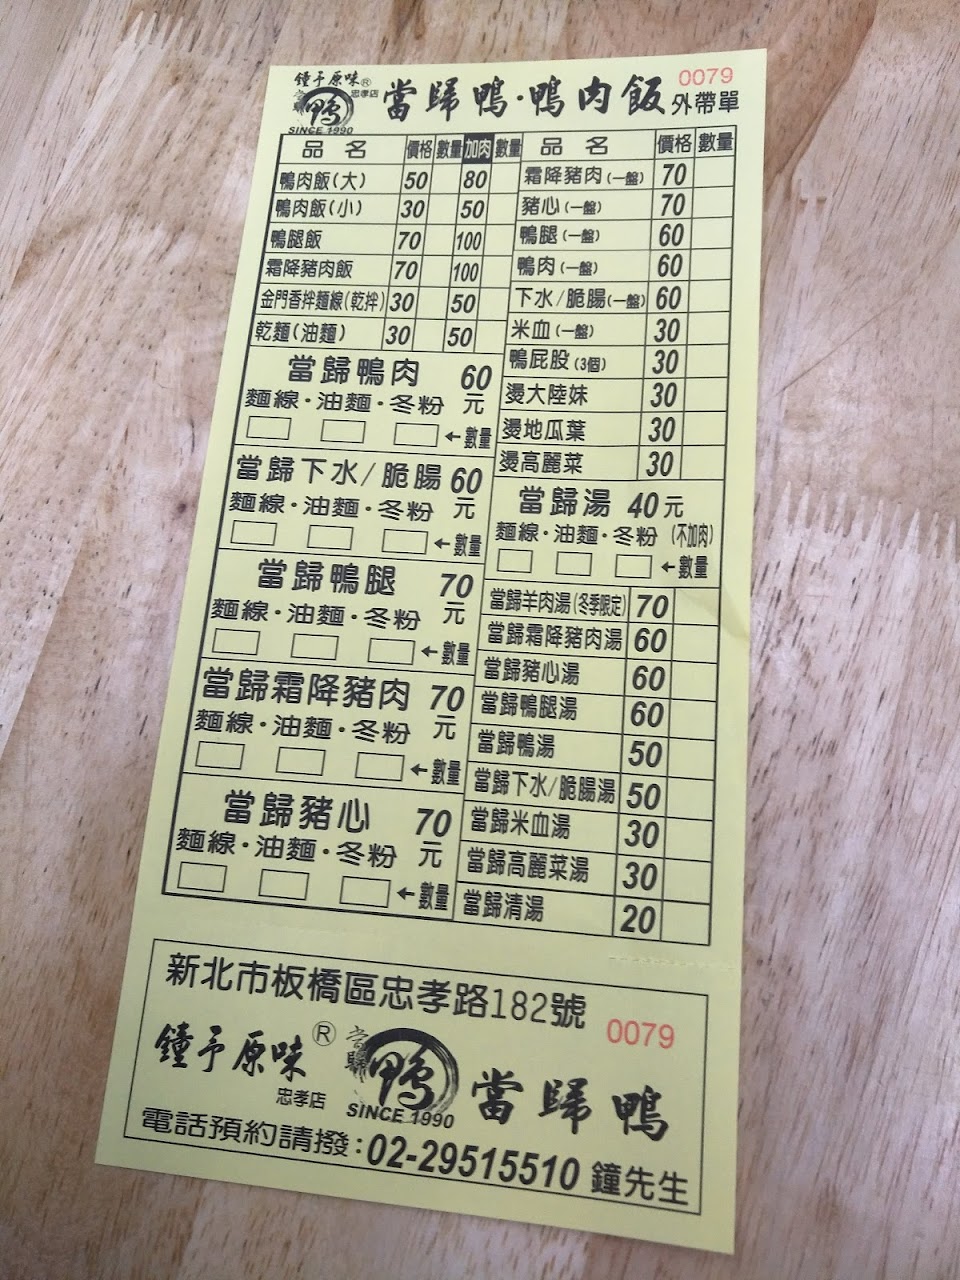 鐘予原味®
忠孝店
當歸
鴨
SINCE 1990
當歸鴨·鴨肉飯
0079
外帶單
品名 價格 數量 加肉 數量
鴨肉飯(大) 50 80
鴨肉飯(小) 30 50
鴨腿飯 70 100
霜降豬肉飯 70 100
金門香拌麵線(乾拌) 30 50
乾麵(油麵) 30 50
當歸鴨肉 60元
麵線·油麵·冬粉
←數量
當歸下水/脆腸 60元
麵線·油麵·冬粉
←數量
當歸鴨腿 70元
麵線·油麵·冬粉
←數量
當歸霜降豬肉 70元
麵線·油麵·冬粉
←數量
當歸豬心 70元
麵線·油麵·冬粉
←數量
品名 價格 數量
霜降豬肉(一盤) 70
豬心(一盤) 70
鴨腿(一盤) 60
鴨肉(一盤) 60
下水/脆腸(一盤) 60
米血(一盤) 30
鴨屁股(3個) 30
燙大陸妹 30
燙地瓜葉 30
燙高麗菜 30
當歸湯 40元
麵線·油麵·冬粉 (不加肉)
←數量
當歸羊肉湯(冬季限定) 70
當歸霜降豬肉湯 60
當歸豬心湯 60
當歸鴨腿湯 60
當歸鴨湯 50
當歸下水/脆腸湯 50
當歸米血湯 30
當歸高麗菜湯 30
當歸清湯 20
新北市板橋區忠孝路182號
0079
鐘予原味®
忠孝店
當歸
鴨
SINCE 1990
當歸鴨
電話預約請撥:02-29515510 鐘先生